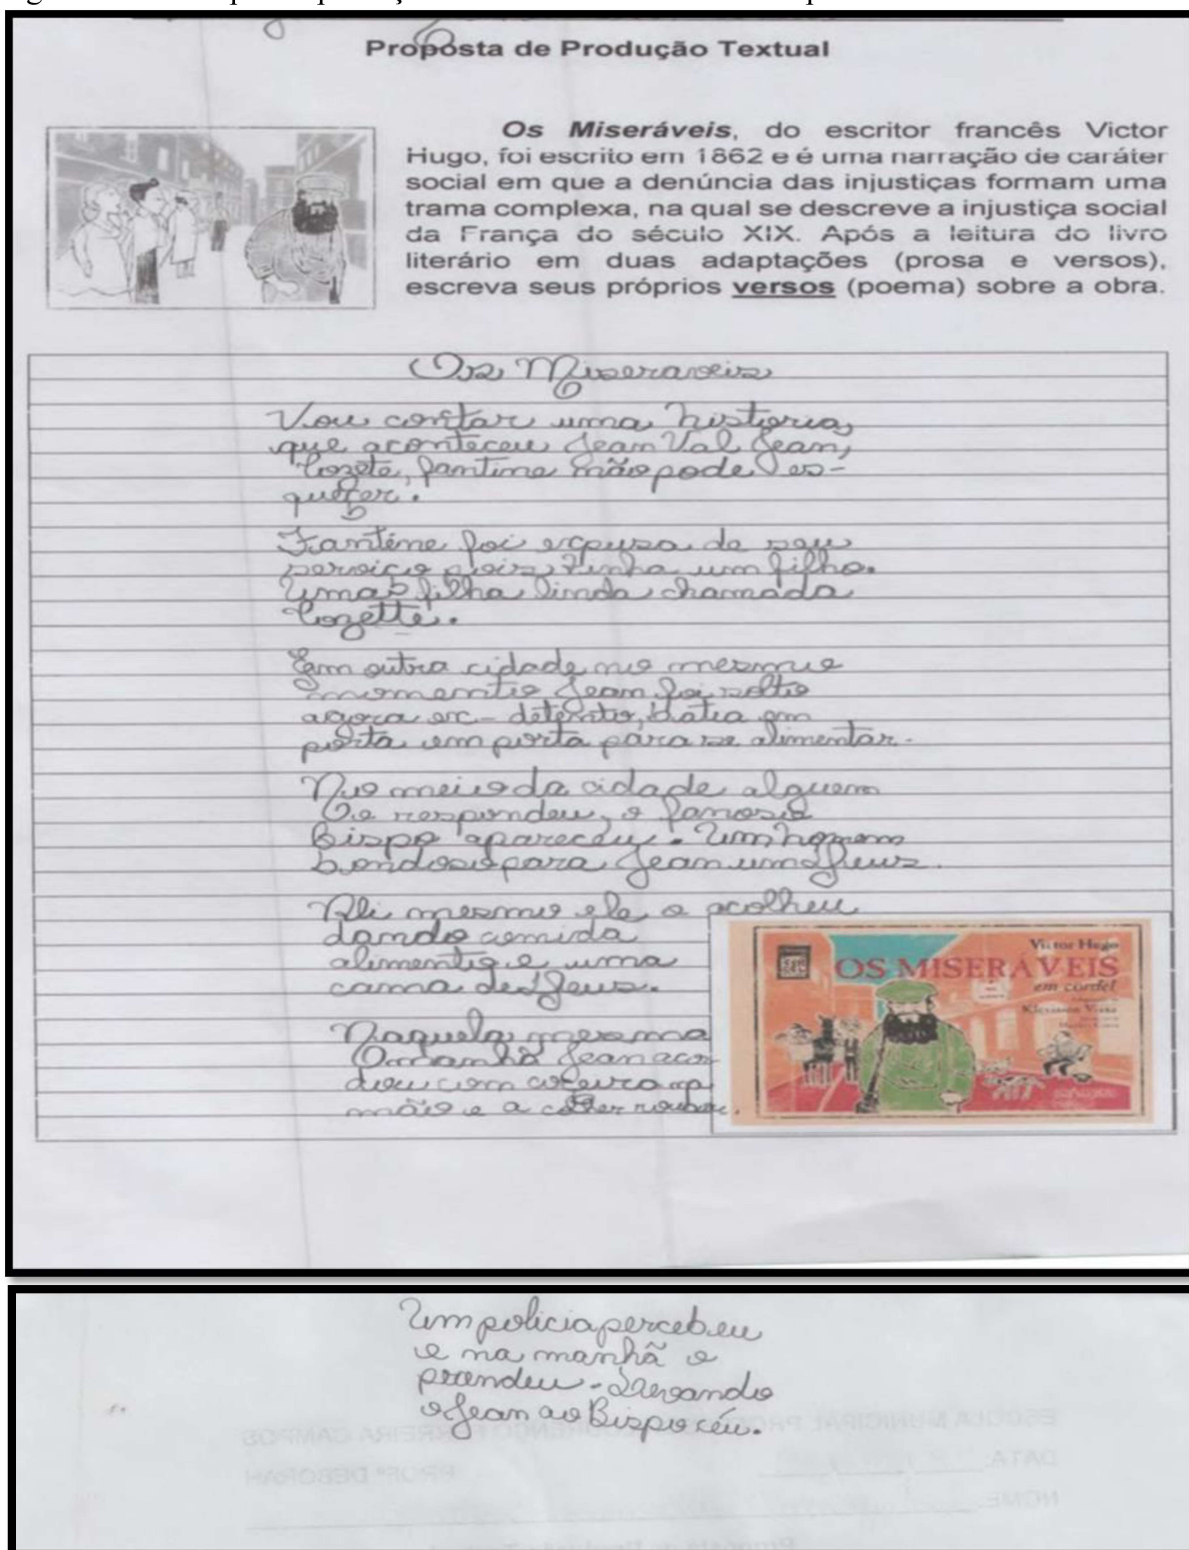 Proposta de Produção Textual
Os Miseráveis, do escritor francês Victor
Hugo, foi escrito em 1862 e é uma narração de caráter
social em que a denúncia das injustiças formam uma
trama complexa, na qual se descreve a injustiça social
da França do século XIX. Após a leitura do livro
literário em duas adaptações (prosa e versos),
escreva seus próprios versos (poema) sobre a obra.
Os Miseraveis
Vou contar uma historia,
que aconteceu Jean Val Jean,
Cozete, fantine não pode es-
queçer.
Fanténe foi expusa de seu
serviço pois tinha um filho.
Uma filha linda chamada
Cozette.
Em outra cidade no mesmo
momento Jean foi solto
agora ex-detento, batia em
porta em porta para se alimentar.
No meio da cidade alguem
o respondeu, o famoso
Bispo apareceu. Um homem
bondoso para Jean um Deus.
Ali mesmo ele o acolheu
dando comida
alimento e uma
cama de Deus.
Naquela mesma
manhã Jean acor
dou com coceira na
mão e a colher roubou.
Victor Hugo
OS MISERÁVEIS
em cordel
Klévisson Viana
Um policia percebeu
e na manhã o
prendeu. Levando
o Jean ao Bispo céu.
ESCOLA MUNICIPAL
FERREIRA CAMPOS
DATA:
PROFª DEBORAH
NOME:
Proposta de Produção Textual